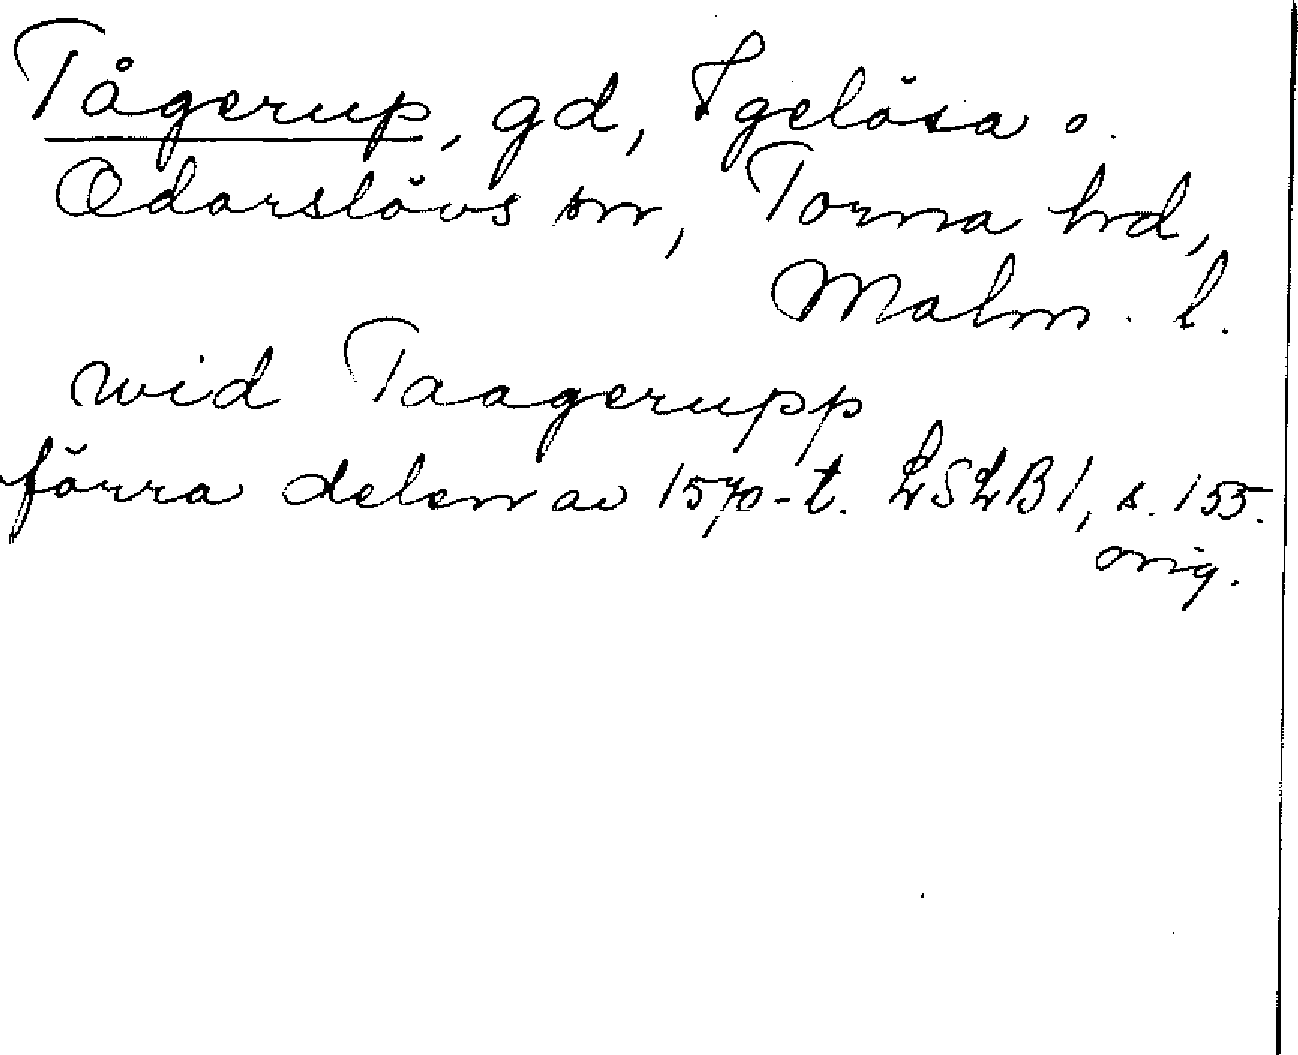 Tågerup, gd, Igelösa o.
Odarslövs sn, Torna hrd,
Malm. l.
wid Taagerupp
förra delen av 1570-t. LSLB1, s. 155.
orig.